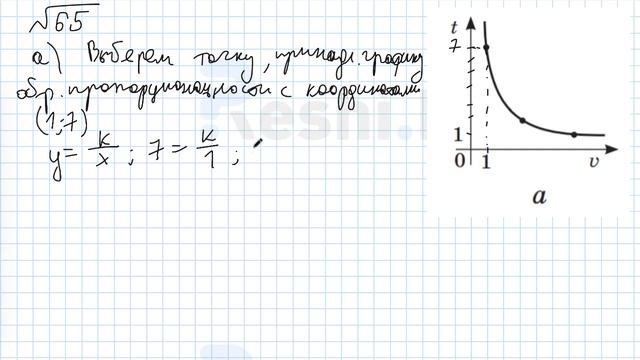 √65
а) Выберем точку, принадл. графику
обр. пропорциональности с координатами
(1;7)
y = k/x ; 7 = k/1 ;
t
7
1
0 1 v
а